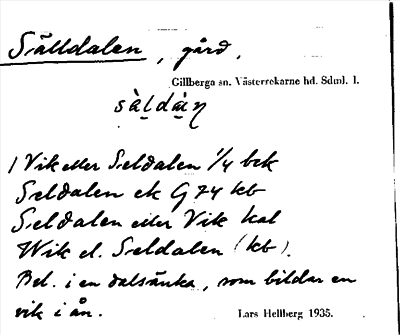 Sälldalen, gård.
Gillberga sn. Västerrekarne hd. Sdml. l.
sàldàṇ
1 Vik eller Seldalen 1/4 bek
Seldalen ek G 74 kb
Seldalen eller Vik kal
Wik el. Seldalen (kb).
Bel. i en dalsänka, som bildar en
vik i ån.
Lars Hellberg 1935.